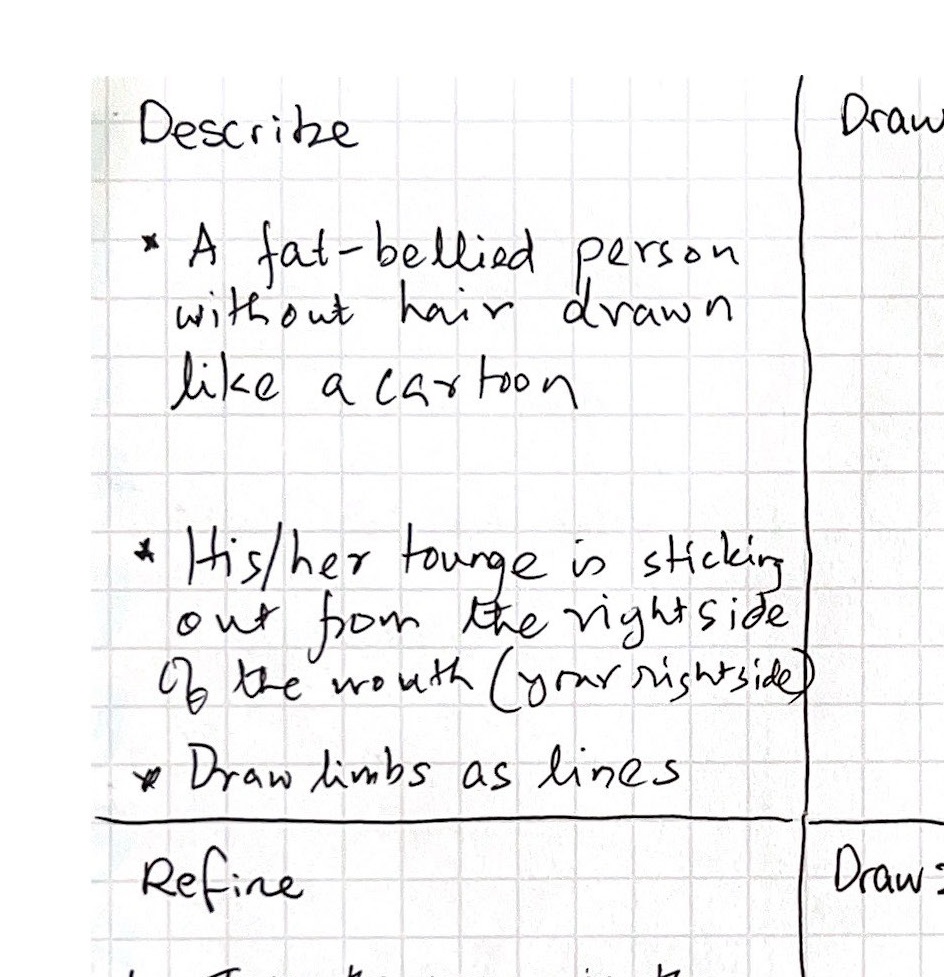 Describe
Draw
* A fat-bellied person
without hair drawn
like a cartoon
* His/her tounge is sticking
out from the rightside
of the mouth (your rightside)
* Draw limbs as lines
Refine
Draw: